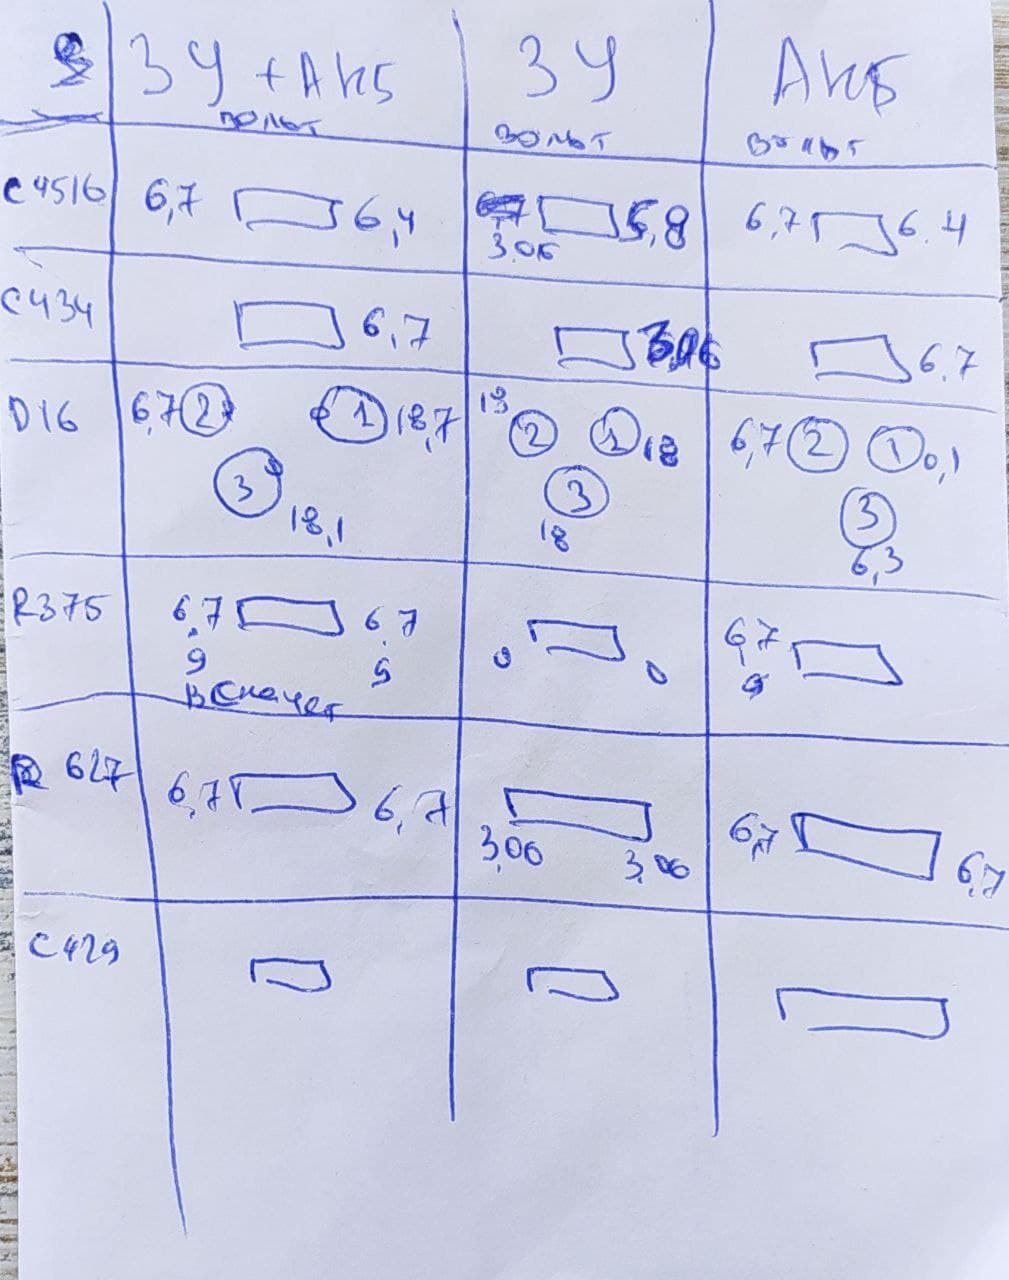 ЗУ + АКБ ЗУ АКБ
вольт вольт вольт
C4516 6,7 6,4 5,8 6,7 6.4
3,06
C434 6,7 3,06 6,7
D16 6,7 2 1 18,7 18 2 1 18 6,7 2 1 0,1
3 18,1 3 18 3 6,3
R375 6,7 6,7 0 0 6,7
9 5 9
В скачет
R 627 6,7 6,7 3,06 3,06 6,7 6,7
C429